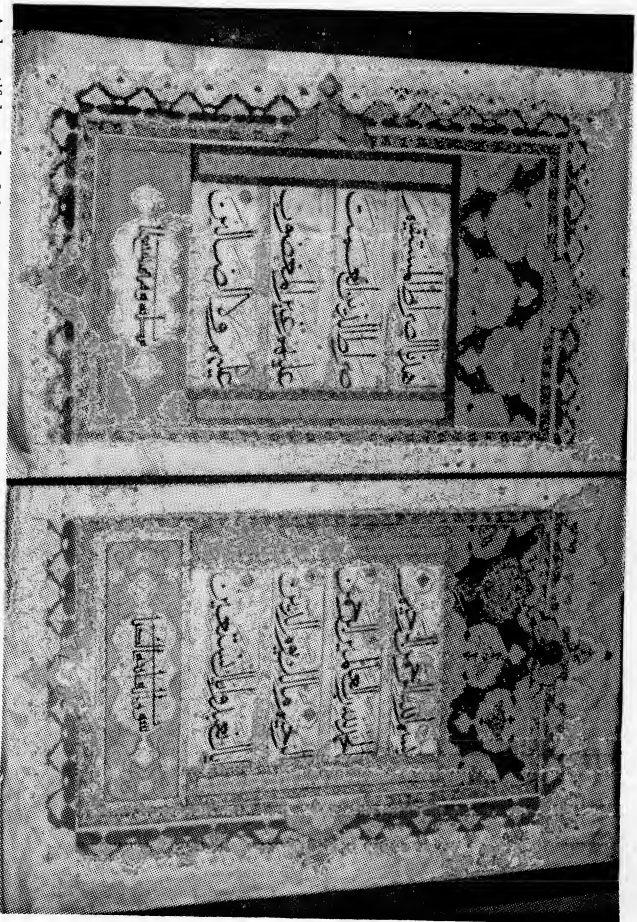 بسم الله الرحمن الرحيم
الحمد لله رب العالمين الرحمن
الرحيم مالك يوم الدين
اياك نعبد واياك نستعين
اهدنا الصراط المستقيم
صراط الذين انعمت
عليهم غير المغضوب
عليهم ولا الضالين